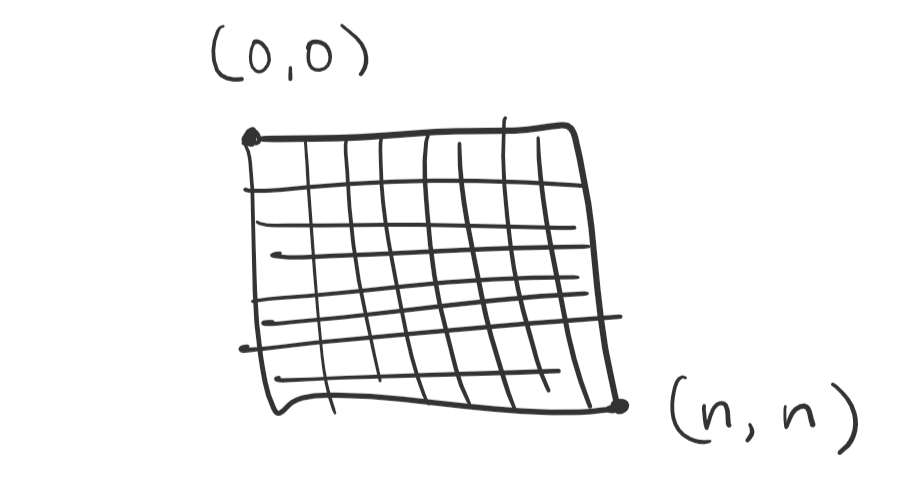 (0,0)
(n, n)